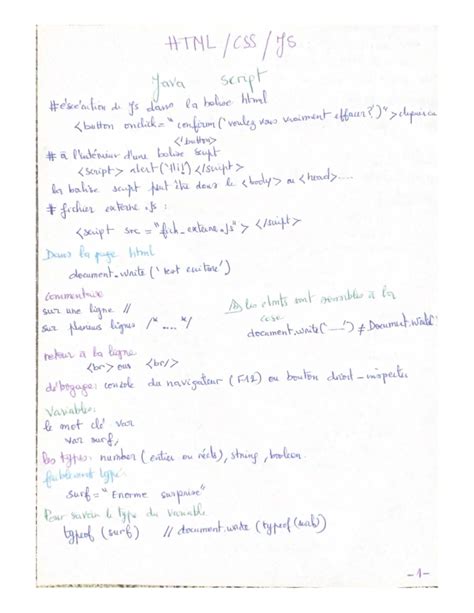 HTML/CSS/JS
Java script
# éxécution de Js dans la balise html
<button onclick="confirm('voulez vous vraiment effacer?')">
</button>
# à l'intérieur d'une balise script
<script> alert('Hi!) </script>
la balise script peut être dans le <body> ou <head>....
# fichier externe .js :
<script src="fich_externe.js"> </script>
Dans la page html
document.write('test ecriture')
commentaire
sur une ligne //
sur plusieurs lignes /* .... */
⚠ les elmts sont sensibles à la
case
document.write('___') ≠ Document.Write'
retour à la ligne
<br> ou <br/>
débogage: console du navigateur (F12) ou bouton droit - inspecter
Variables:
le mot clé var
var surf,
les types: number (entier ou réels), string, boolean.
faiblement typé:
surf = "Enorme surprise"
Pour savoir le type du variable
typeof (surf) // document.write (typeof(surf))
-1-